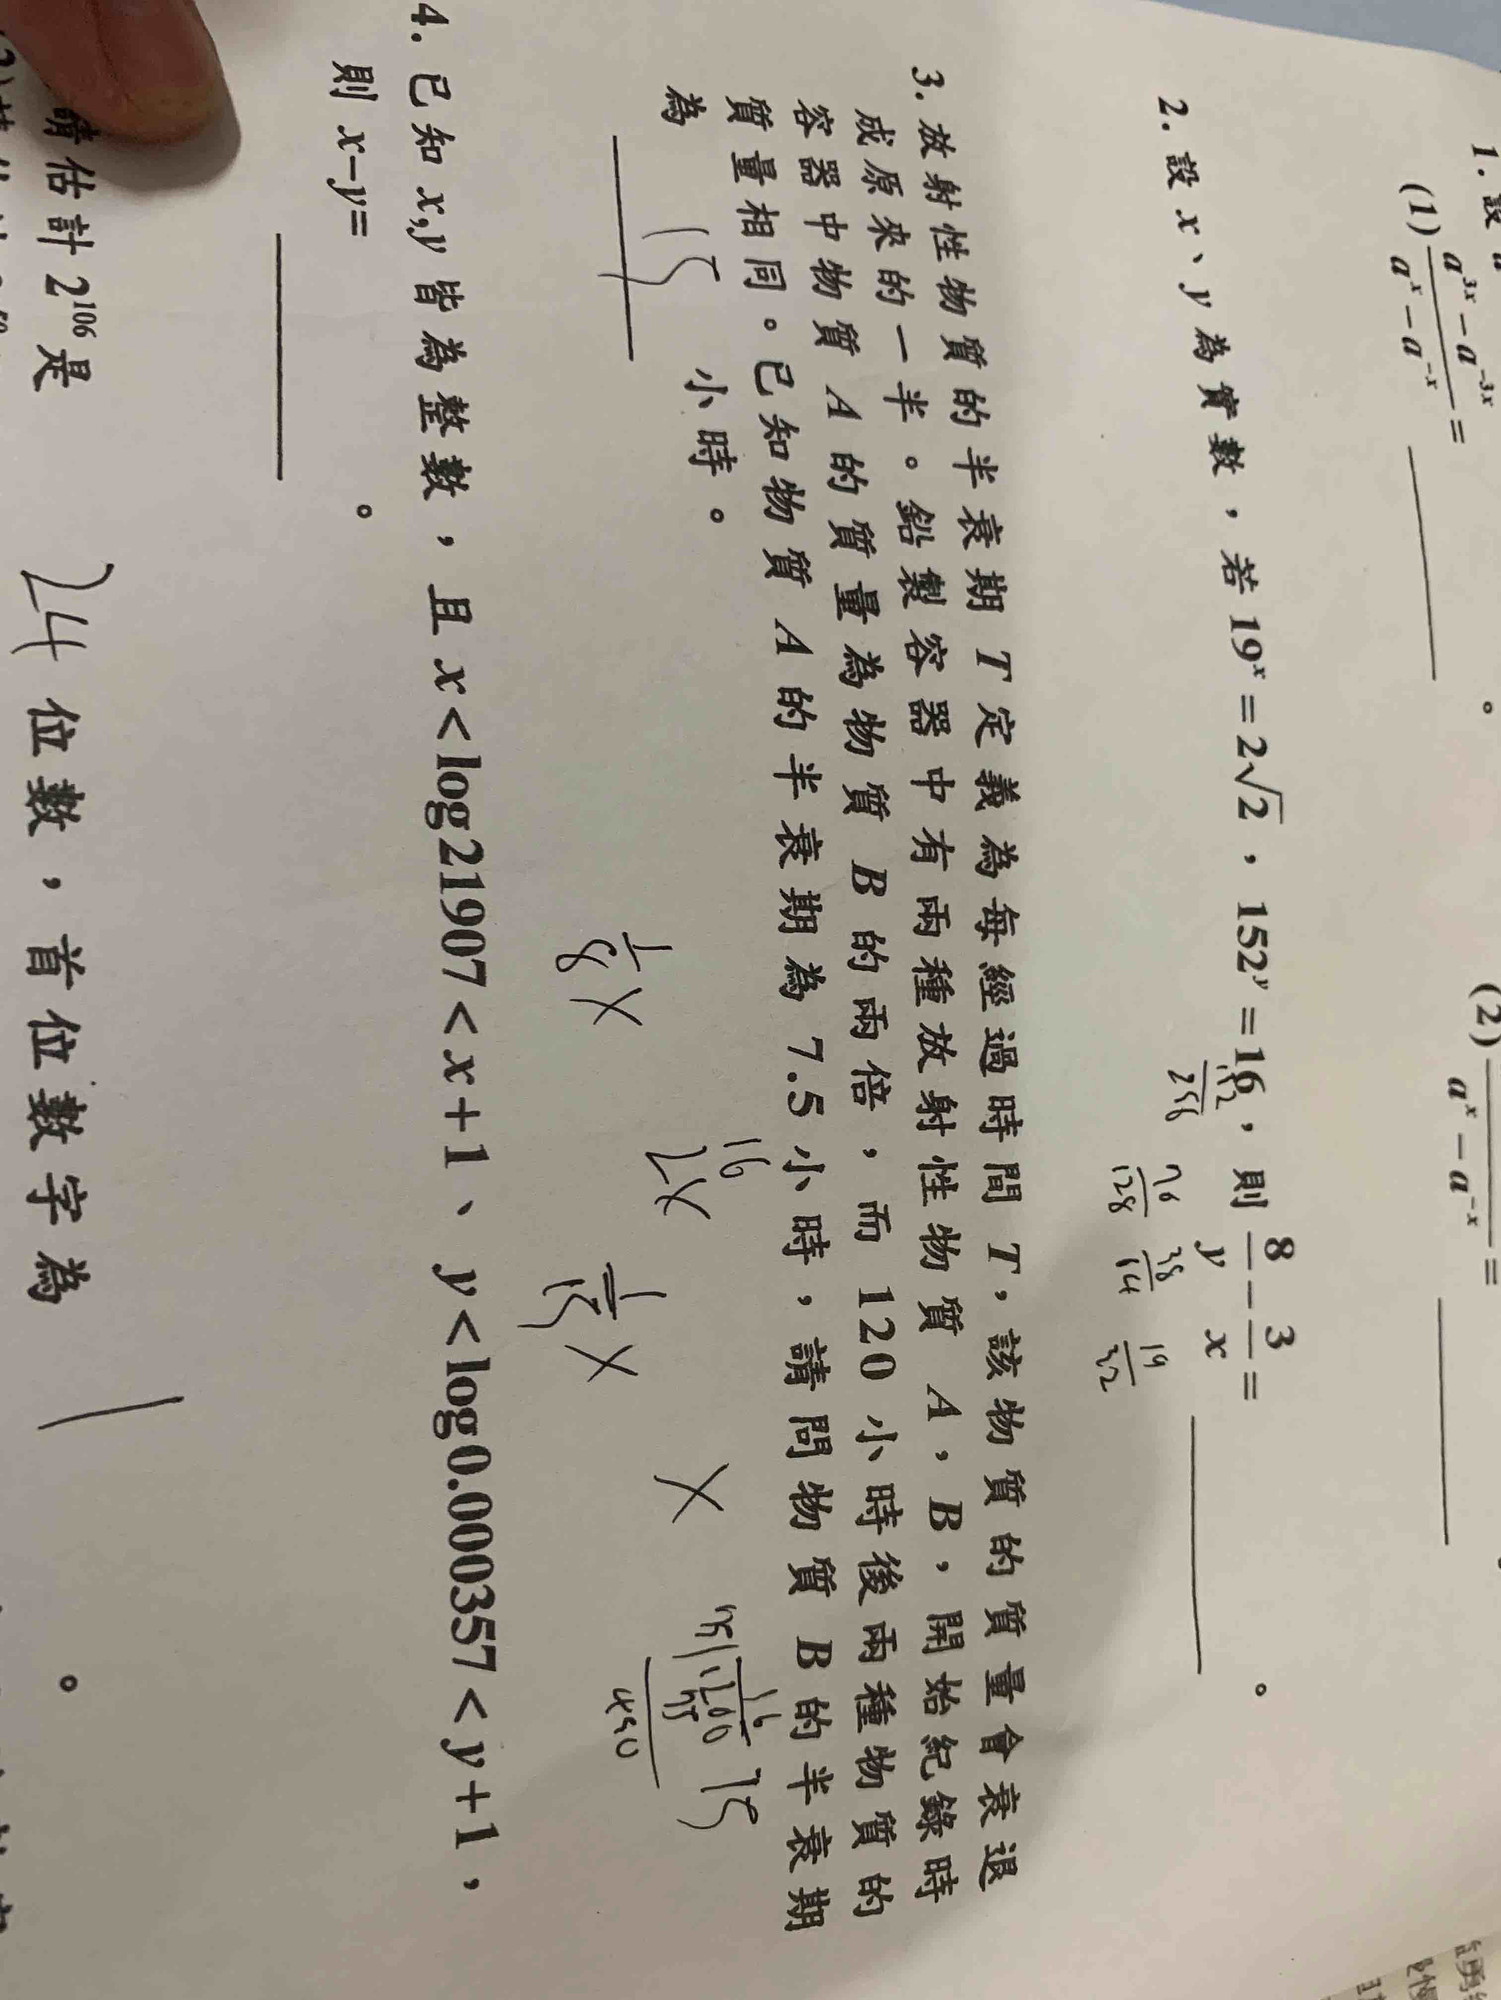 1. 設 a
(1) \frac{a^{3x} - a^{-3x}}{a^x - a^{-x}} = ______ 。 (2) \frac{}{a^x - a^{-x}} = ______
2. 設 x、y 為實數，若 19^x = 2√2，152^y = 16，則 \frac{8}{y} - \frac{3}{x} = ______ 。
\frac{152}{256} \frac{76}{128} \frac{38}{64} \frac{19}{32}
3. 放射性物質的半衰期 T 定義為每經過時間 T，該物質的質量會衰退
成原來的一半。鉛製容器中有兩種放射性物質 A，B，開始紀錄時
容器中物質 A 的質量為物質 B 的兩倍，而 120 小時後兩種物質的
質量相同。已知物質 A 的半衰期為 7.5 小時，請問物質 B 的半衰期
為 小時。
4. 已知 x,y 皆為整數，且 x < log21907 < x+1、y < log0.000357 < y+1，
則 x-y= ______ 。
請估計 2^{106} 是 24 位數，首位數字為 1 。